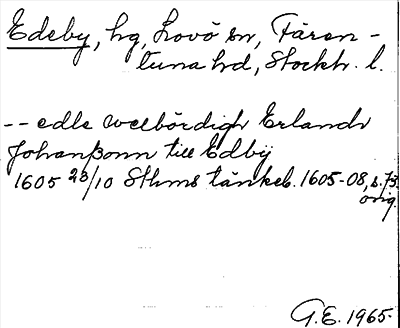 Edeby, hg, Lovö sn, Fären-
tuna hd, Stockh. l.
-- edle welbördigh Erlandr
Johanßonn till Edbÿ
1605 23/10 Sthms tänkeb. 1605-08, s. 73.
orig.
G.E. 1965.